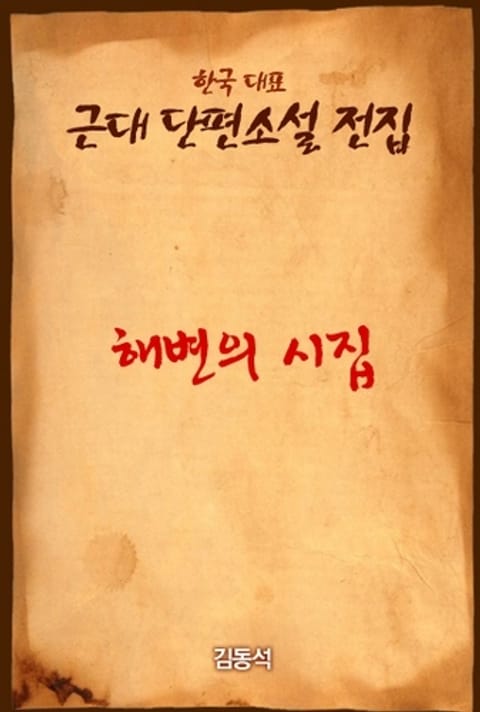 한국 대표
근대 단편소설 전집
해변의 시집
김동석